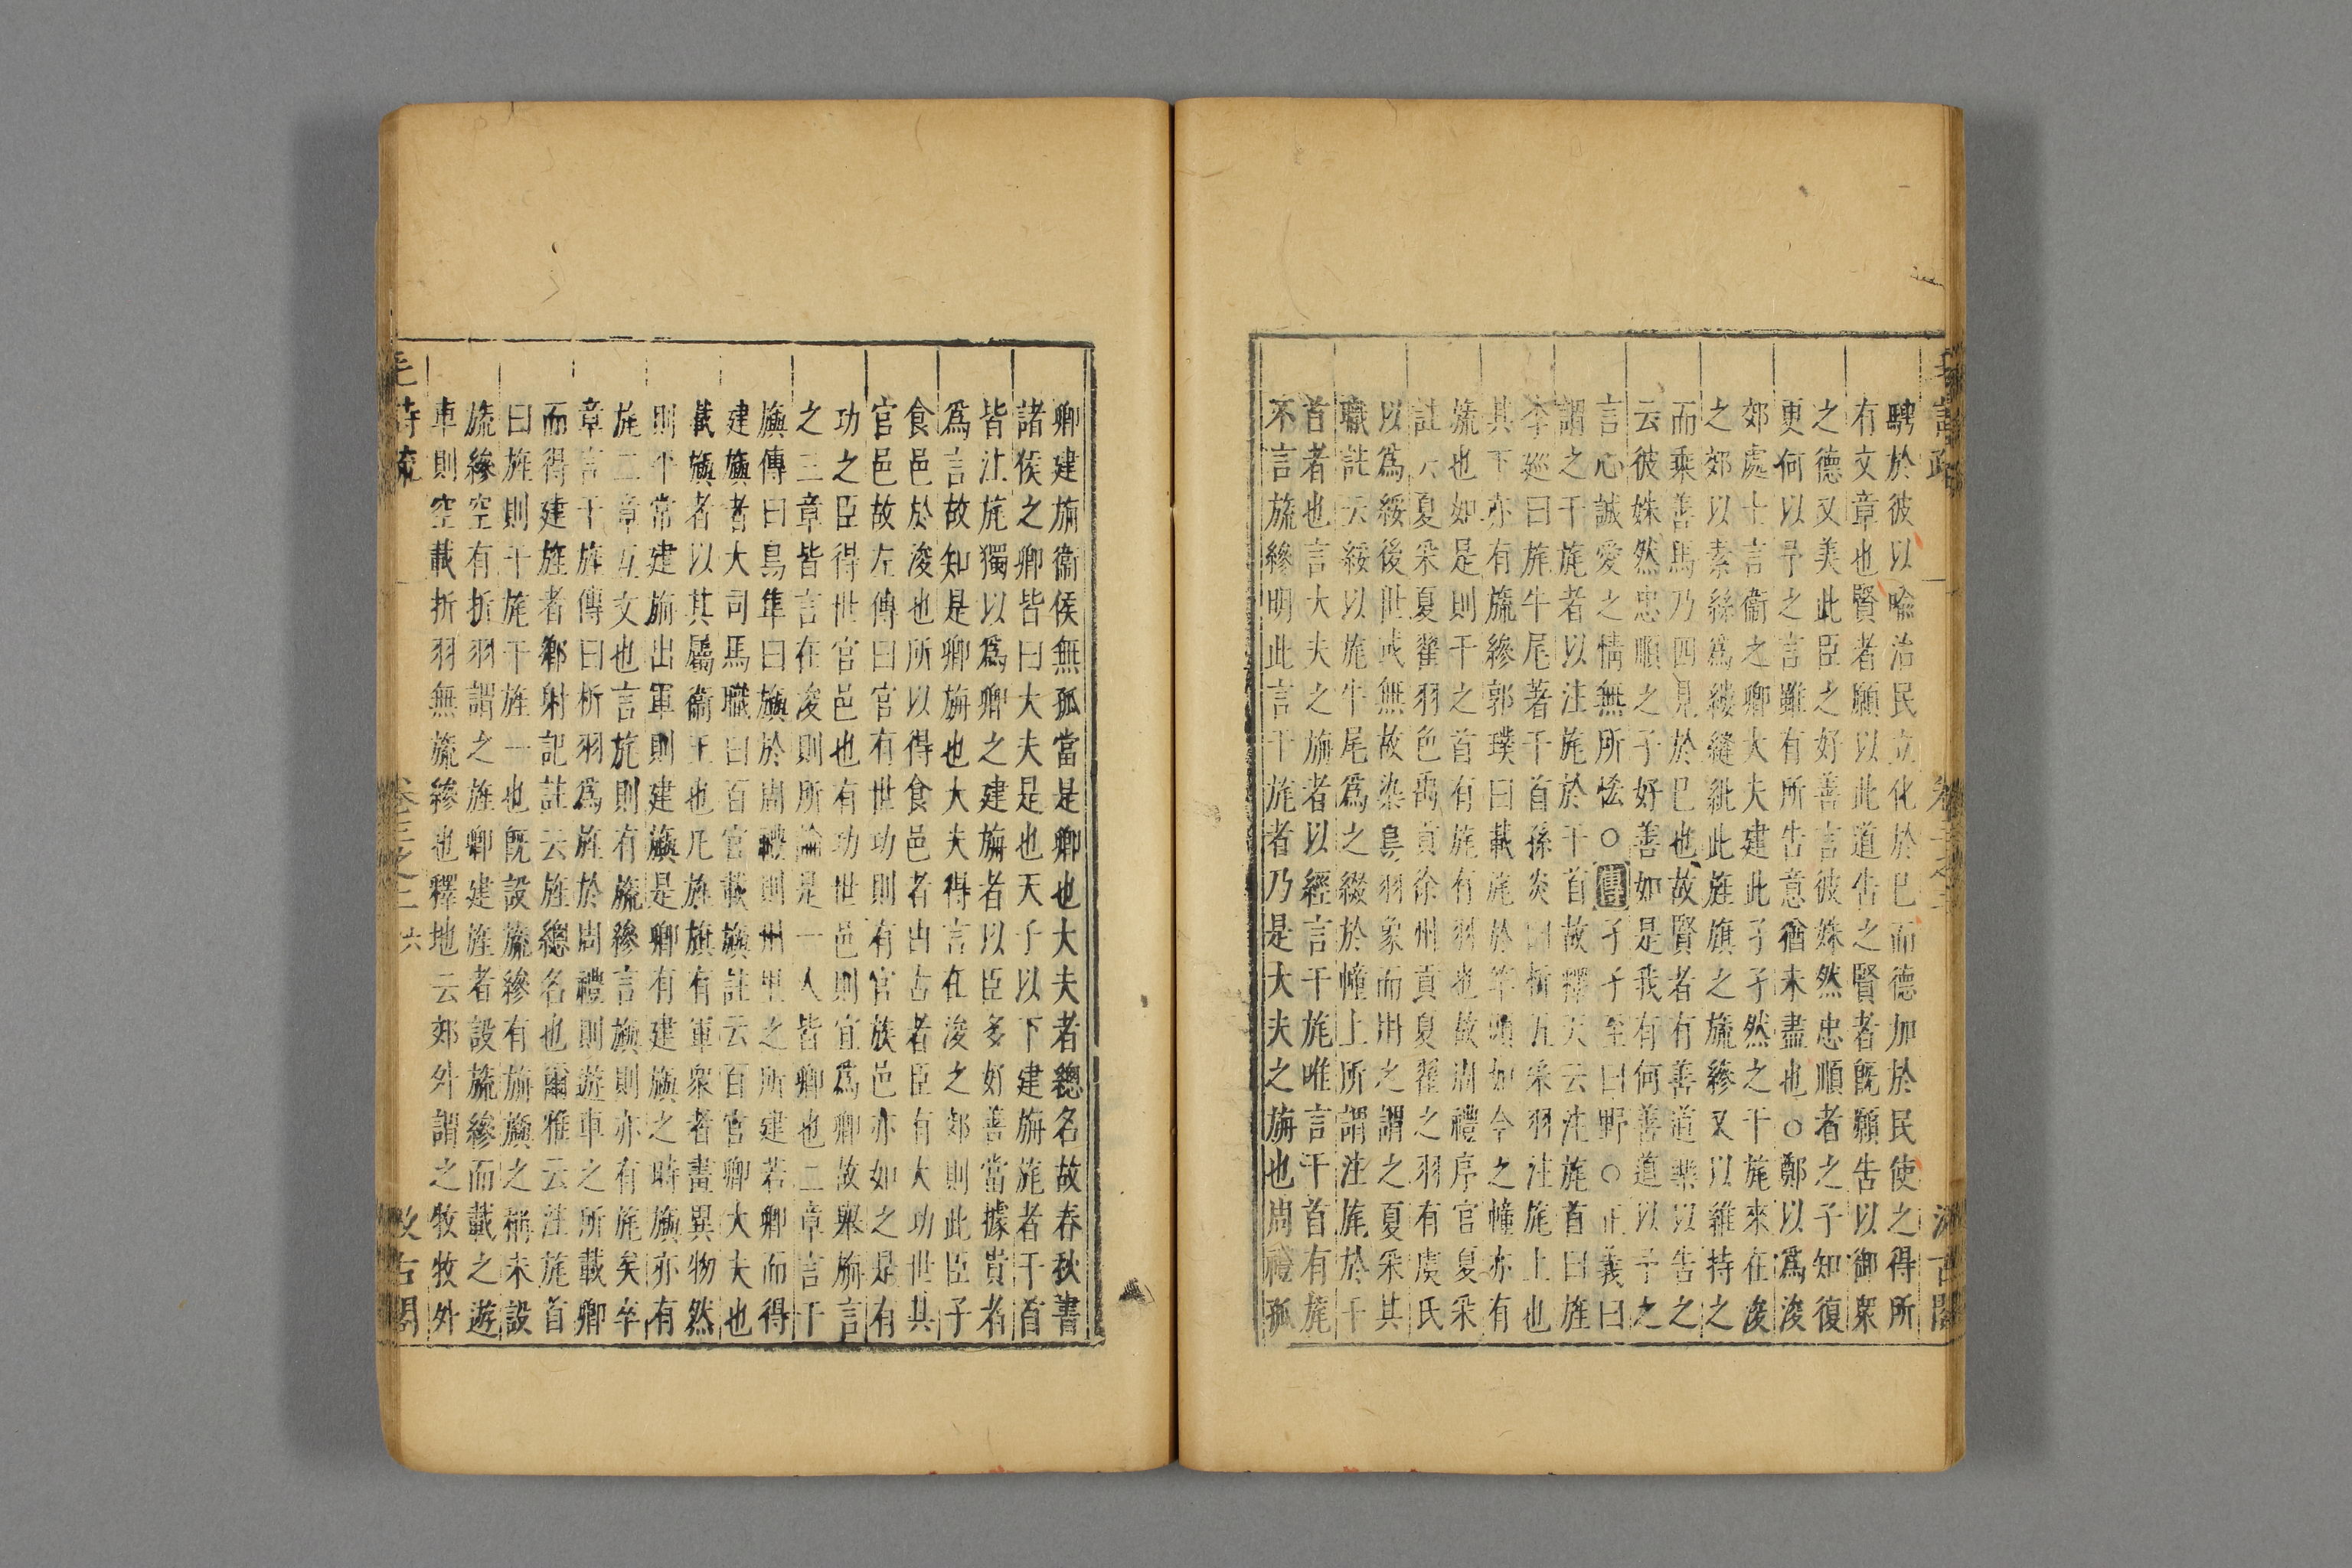 騁於彼以喻治民立化於巳而德加於民使之得所
有文章也賢者願以此道告之賢者旣願告以御衆
之德又美此臣之好善言彼姝然忠順者之子知復
更何以予之言雖有所告意猶未盡也○鄭以爲浚
郊處士言衞之卿大夫建此孑孑然之干旄來在浚
之郊以素絲爲縷縫紕此旌旗之旒縿又以維持之
而乘善馬乃四見於巳也故賢者有善道樂以告之
云彼姝然忠順之子好善如是我有何善道以予之
言心誠愛之情無所恡○傳孑孑至曰野○正義曰
謂之干旄者以注旄於干首故釋天云注旄首曰旌
李巡曰旄牛尾著干首孫炎曰析五采羽注旄上也
其下亦有旒縿郭璞曰載旄於竿頭如今之幢亦有
旒也如是則干之首有旄有羽也故周禮序官夏采
註云夏采夏翟羽色禹貢徐州貢夏翟之羽有虞氏
以爲綏後世或無故染鳥羽象而用之謂之夏采其
職註云綏以旄牛尾爲之綴於幢上所謂注旄於干
首者也言大夫之旃者以經言干旄唯言干首有旄
不言旒縿明此言干旄者乃是大夫之旃也周禮孤
卿建旃衞侯無孤當是卿也大夫者總名故春秋書
諸侯之卿皆曰大夫是也天子以下建旃旄者干首
皆注旄獨以爲卿之建旃者以臣多好善當據貴者
爲言故知是卿旃也大夫得言在浚之郊則此臣子
食邑於浚也所以得食邑者由古者臣有大功世其
官邑故左傳曰官有世功則有官族邑亦如之是有
功之臣得世官邑也有功世邑則宜爲卿故舉旃言
之三章皆言在浚則所論是一人皆卿也二章言干
旟傳曰鳥隼曰旟於周禮則州里之所建若卿而得
建旟者大司馬職曰百官載旟註云百官卿大夫也
載旟者以其屬衞王也凡旌旗有軍衆者畫異物然
則平常建旃出軍則建旟是卿有建旟之時旟亦有
旄二章互文也言旄則有旒縿言旟則亦有旄矣卒
章言干旌傳曰析羽爲旌於周禮則遊車之所載卿
而得建旌者鄉射記註云旌總名也爾雅云注旄首
曰旌則干旄干旌一也旣設旒縿有旃旟之稱未設
旒縿空有折羽謂之旌卿建旌者設旒縿而載之遊
車則空載折羽無旒縿也釋地云郊外謂之牧牧外
毛詩疏 卷三之二 六 汲古閣